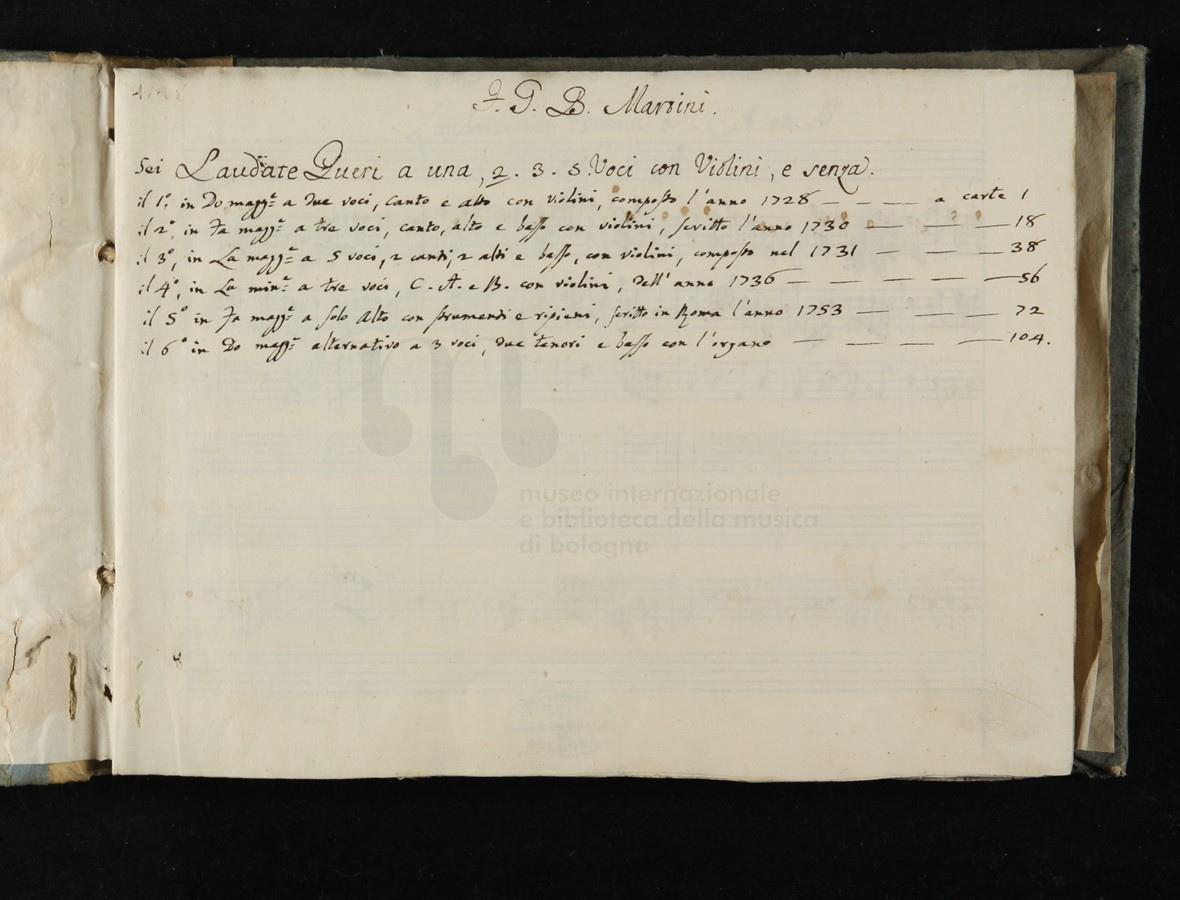 F. G. B. Martini.
Sei Laudate Pueri a una, 2. 3. 5. Voci con Violini, e senza.
il 1º, in Do magg.e a due voci, canto e alto con violini, composto l'anno 1728 — — — a carte 1
il 2º, in Fa magg.e a tre voci, canto, alto e basso con violini, scritto l'anno 1730 — — — 18
il 3º, in La magg.e a 5 voci, 2 canti, 2 alti e basso, con violini, composto nel 1731 — — — 38
il 4º, in La min.e a tre voci, C. A. e B. con violini, dell'anno 1736 — — — — 56
il 5º in Fa magg.e a solo Alto con strumenti e ripieni, scritto in Roma l'anno 1753 — — — 72
il 6º in Do magg.e alternativo a 3 voci, due tenori e basso con l'organo — — — — 104.
museo internazionale
e biblioteca della musica
di bologna